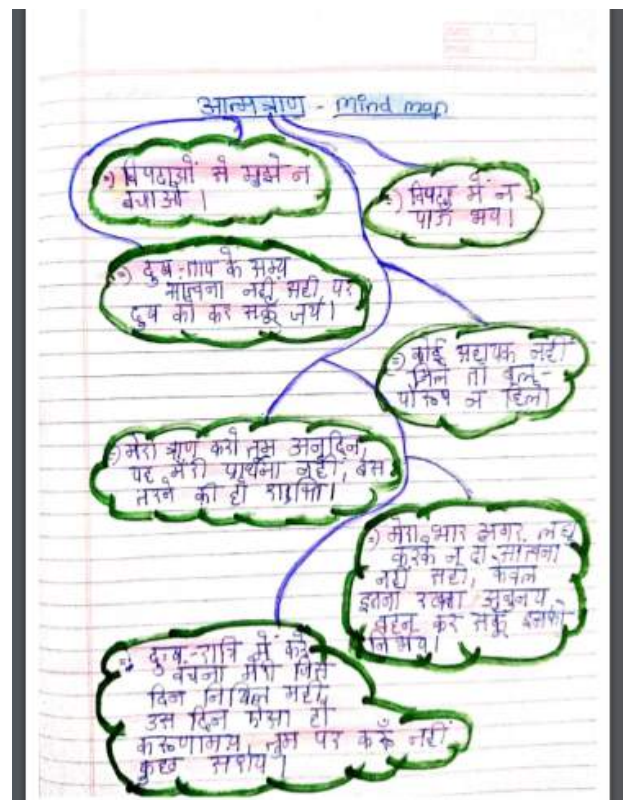 आत्मत्राण - Mind map
विपदाओं से मुझे न
बचाओ ।
विपदा में न
पाऊँ भय।
दुख-ताप के समय
सांत्वना नहीं सही पर
दुख को कर सकूँ जय।
कोई सहायक नहीं
मिले तो बल-
पौरुष न हिले
मेरा त्राण करो तुम अनुदिन,
यह मेरी प्रार्थना नहीं, बस
तरने की हो शक्ति।
मेरा भार अगर लघु
करके न दो सांत्वना
नहीं सही, केवल
इतना रखना अनुनय,
वहन कर सकूँ इसको
निर्भय।
दुख-रात्रि में करे
वंचना मेरी जिस
दिन निखिल मही,
उस दिन ऐसा हो
करुणामय, तुम पर करूँ नहीं
कुछ संशय ।